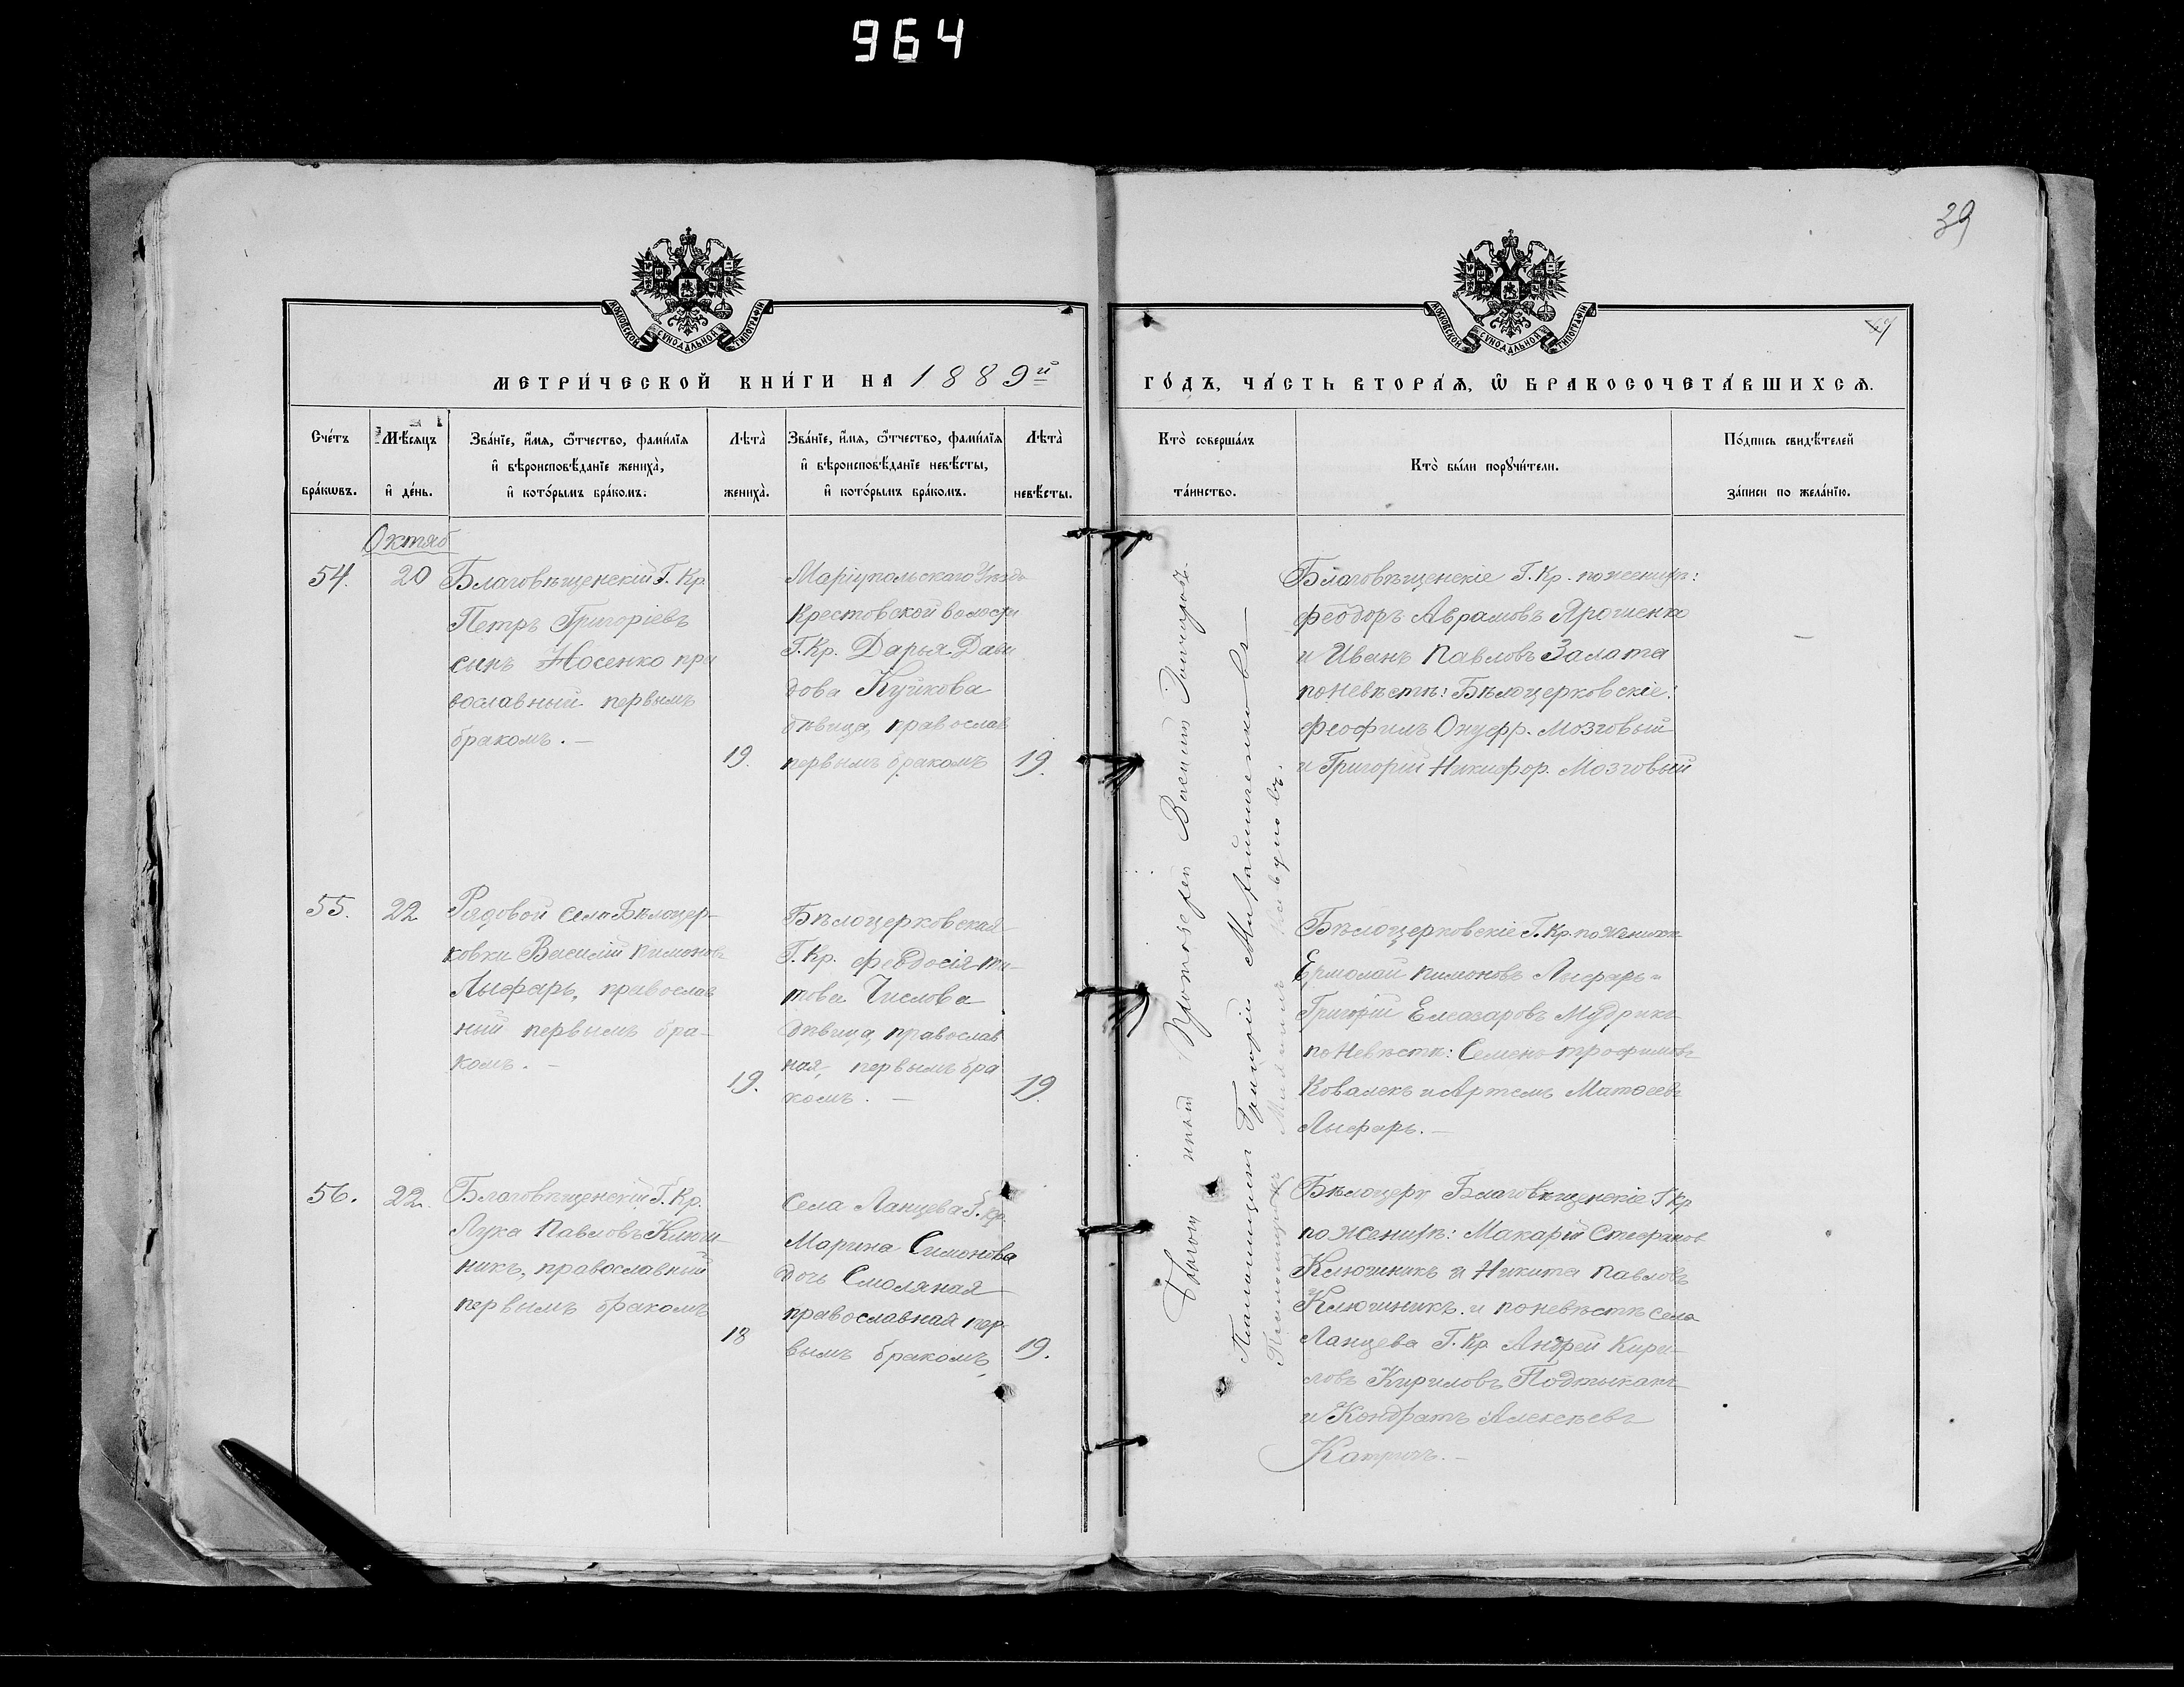 964
39
МОСКОВСКОЙ СУНОДАЛЬНОЙ ТИПОГРАФІИ
МОСКОВСКОЙ СУНОДАЛЬНОЙ ТИПОГРАФІИ
МЕТРИ́ЧЕСКОЙ КНИ́ГИ НА 1889й
ГО́ДЪ, ЧА́СТЬ ВТОРА́Ѧ, Ѽ БРАКОСОЧЕТА́ВШИХСѦ.
47
Сче́тъ бра́кωвъ.
Мѣ́сяцъ и҆ де́нь.
Зва́нїе, и҆́мѧ, ѻ҆́тчество, фами́лїѧ
и҆ вѣроисповѣ́данїе жениха̀,
и҆ кото́рымъ бра́комъ.
Лѣта̀ жениха̀.
Зва́нїе, и҆́мѧ, ѻ҆́тчество, фами́лїѧ
и҆ вѣроисповѣ́данїе невѣ́сты,
и҆ кото́рымъ бра́комъ.
Лѣта̀ невѣ́сты.
Кто̀ соверша́лъ та́инство.
Кто̀ бы́ли порꙋчи́тели.
По́дпись свидѣ́телей
за́писи по жела́нїю.
Октяб
54.
20
Благовѣщенскій Г. Кр.
Петръ Григоріевъ
сынъ Носенко пра
вославный первымъ
бракомъ. —
19.
Маріупольскаго Уѣзда
Крестовской волости
Г. Кр. Дарья Дави
дова Куйкова
дѣвица, православ
первымъ бракомъ
19.
Благовѣщенскіе Г. Кр. по женихѣ:
Феодоръ Аврамовъ Ярошенко
и Иванъ Павловъ Залата
по Невѣстѣ: Бѣлоцерковскіе:
Феофилъ Онуфр. Мозговый
и Григорій Никифор. Мозговый
55.
22
Рядовой села Бѣлоцер-
ковки Василій Пимоновъ
Лысфарь, православ
ный первымъ бра-
комъ. —
19.
Бѣлоцерковская
Г. Кр. Феѳдосія Ти-
това Числова
дѣвица, православ
ная, первымъ бра
комъ. —
19.
Бѣлоцерковскіе Г. Кр. по Женихѣ
Ермолай Пимоновъ Лысфарь и
Григорій Елеазаровъ Мудрикъ
по Невѣстѣ: Семенъ Трофимовъ
Ковалекъ и Артемъ Матѳеевъ
Лысфарь. —
56.
22.
Благовѣщенскій Г. Кр.
Лука Павловъ Ключ-
никъ, православный
первымъ бракомъ
18
Села Ланцева Г. Кр.
Марина Симонова
дочь Смоляная
православная пер-
вымъ бракомъ
19.
Благовѣщенскіе Г Кр
по Женихѣ: Макарій Стефанов
Ключникъ и Никита Павловъ
Ключникъ. и по невѣстѣ села
Ланцева Г. Кр. Андрей Кири-
ловъ Кириловъ
и Кондратъ Алексѣевъ
Катричъ. —
Протоіерей Василій
Григорій